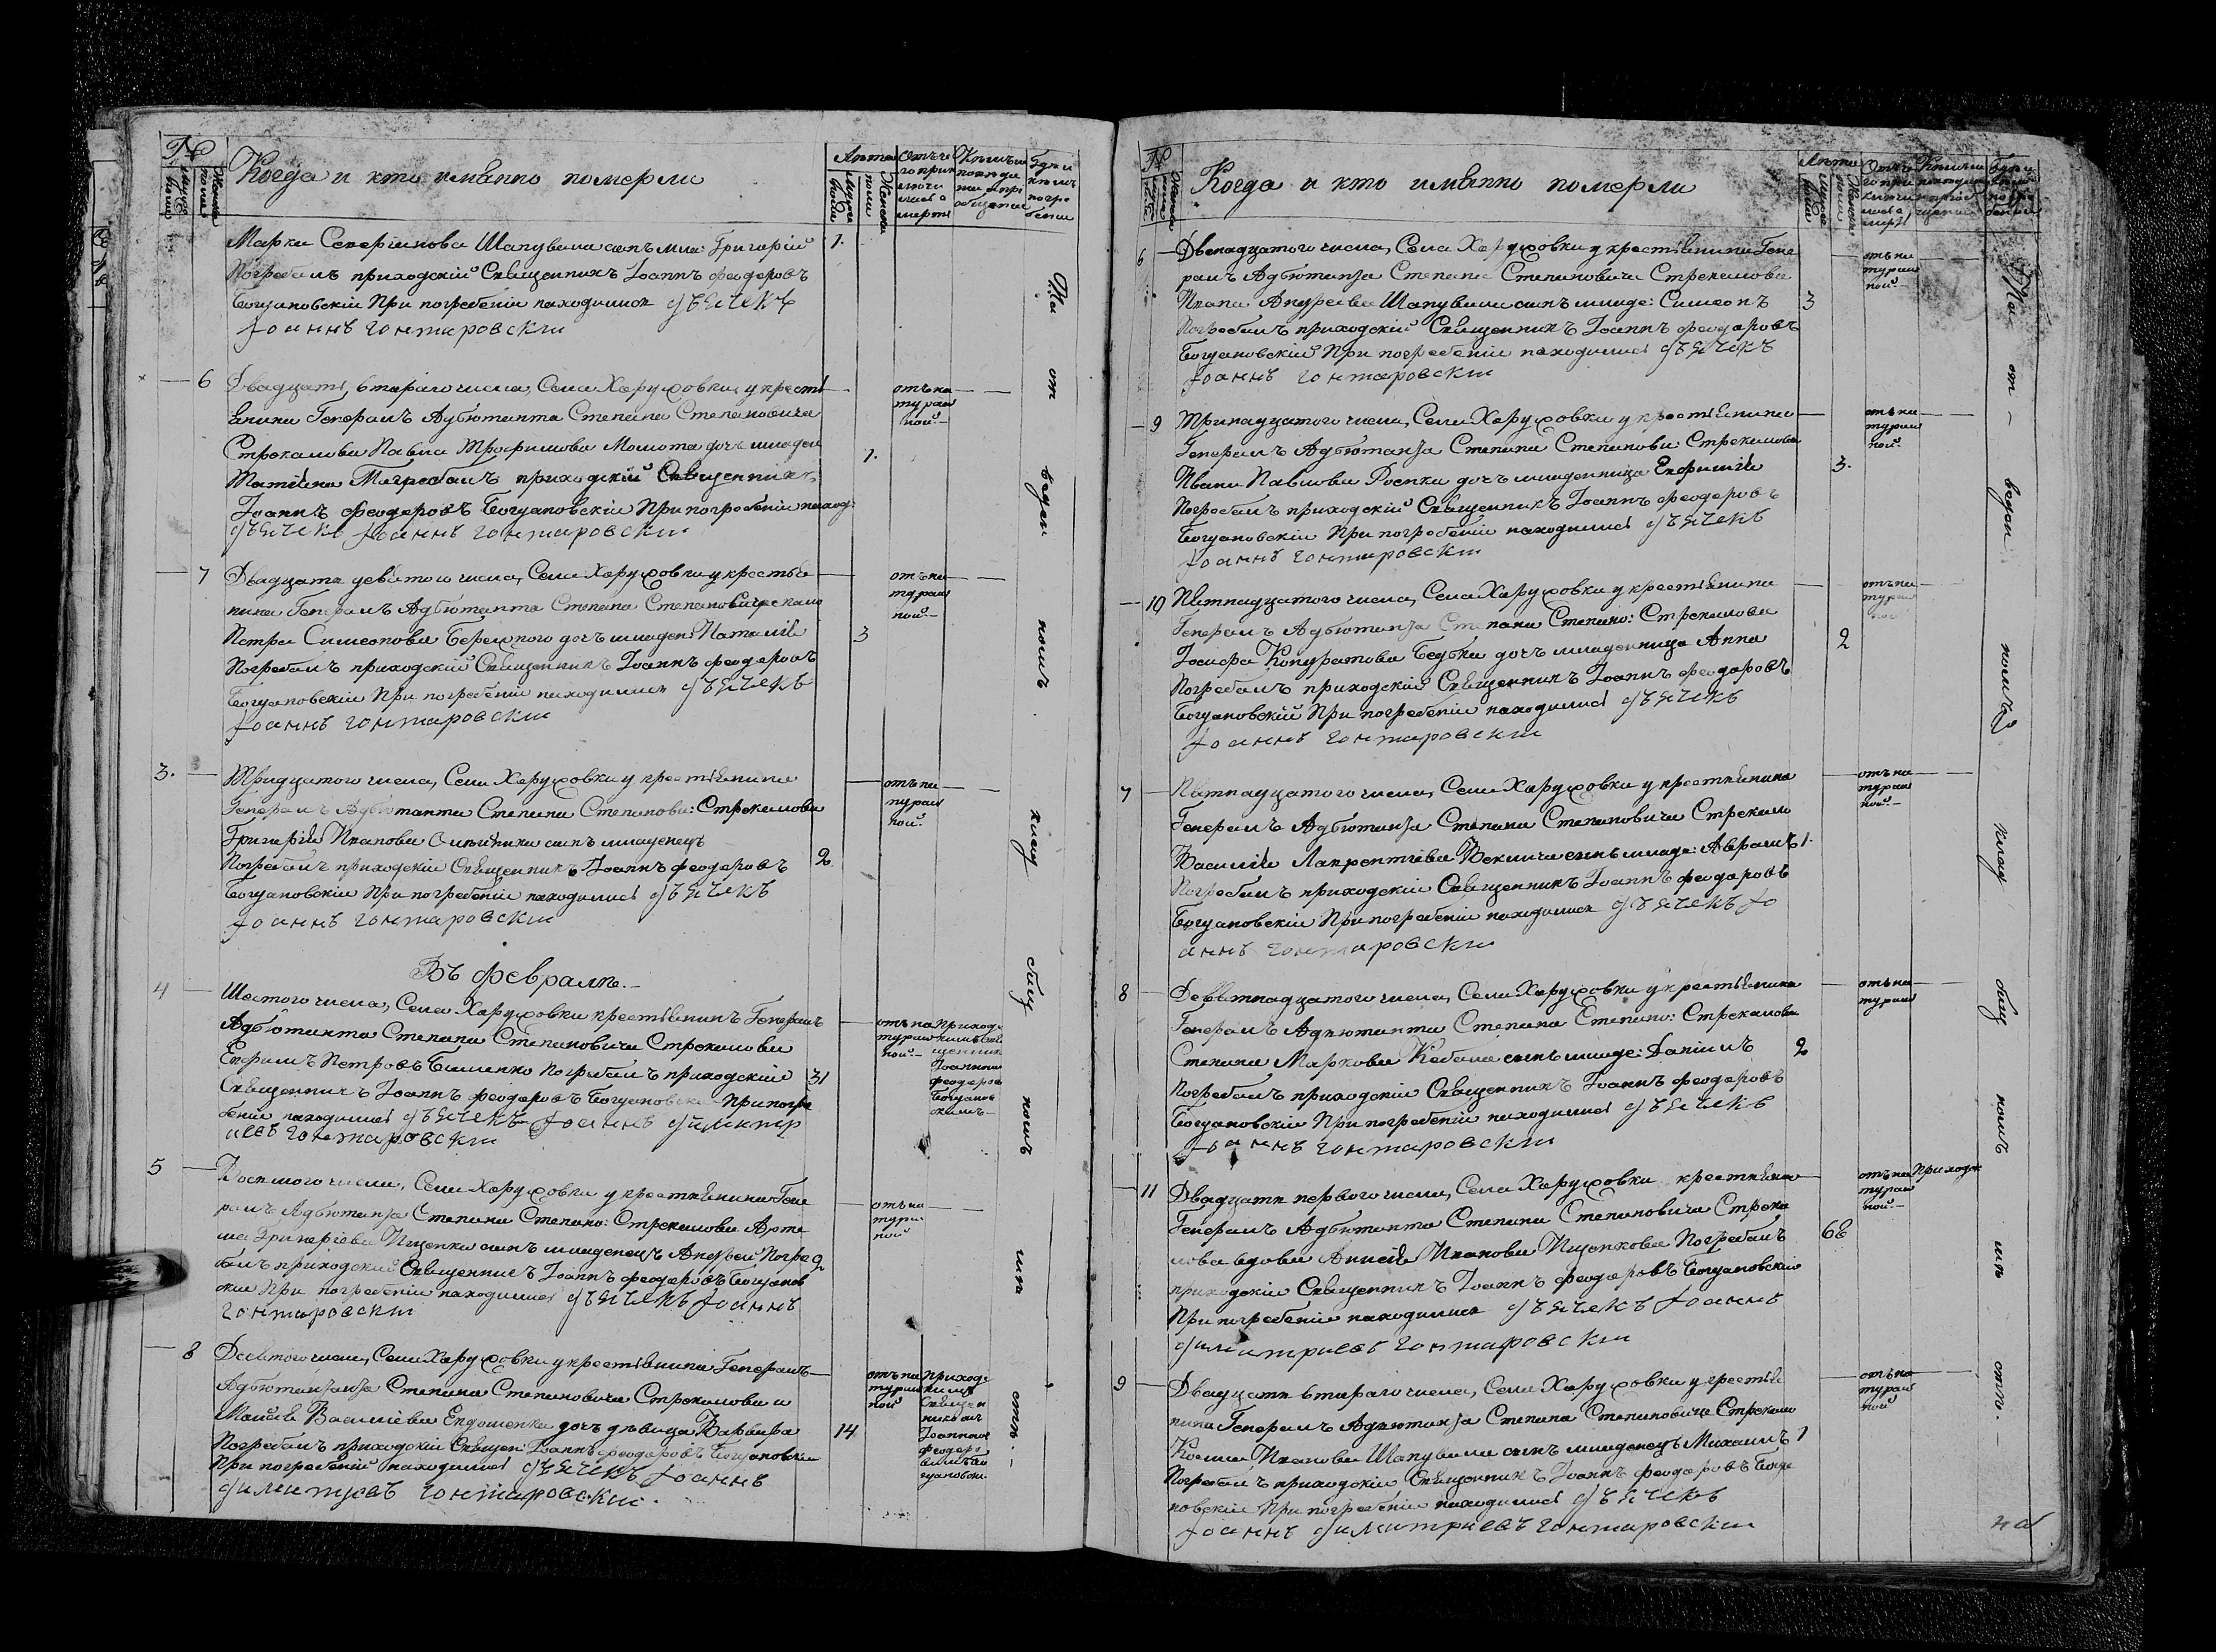 №
мужеска пола
женска пола
Когда и кто имянно померли
Лѣта
мужеска
женска пола
Отъ чего приключилась смерть
Кѣмъ исповѣданы и приобщены
Гдѣ и кѣмъ погребены
Марка Северіянова Шапувала сынъ мла: Григорій 1.
Погребалъ приходскій Священникъ Іоаннъ феодоровъ
Богдановскій При погребеніи находился дъячекъ
Іоаннъ Гонтаровскій
6 Двадцать втораго числа, Села Хорружовки у кресть
янина Генералъ Адъютанта Степана Степановича
Стрекалова Павла Трофимова Момота дочь младен 1.
Татіяна Погребалъ приходскій Священникъ
Іоаннъ феодоровъ Богдановскій При погребеніи наход:
дъячекъ Іоаннъ Гонтаровскій
отъ на
турал
ной
7 Двадцать девятого числа, Села Хорружовки у крестья
нина Генералъ Адъютанта Степана Степанови Стрекало
Петра Симеонова Бережного дочь младен: Наталія 3
Погребалъ приходскій Священникъ Іоаннъ феодоровъ
Богдановскій При погребеніи находился дъячекъ
Іоаннъ Гонтаровскій
отъ на
турал
ной
3. Тридцатого числа, Села Хорружовки у крестьянина
Генералъ Адъютанта Степана Степанови: Стрекалова
Григорія Иванова сынъ младенецъ
Погребалъ приходскій Священникъ Іоаннъ феодоровъ 2
Богдановскій При погребеніи находился дъячекъ
Іоаннъ Гонтаровскій
отъ на
турал
ной
Въ февралѣ.
4 Шестого числа, Села Хорружовки крестьянинъ Генералъ
Адъютанта Степана Степановича Стрекалова
Ефимъ Петровъ Биленко Погребалъ приходскій 31
Священникъ Іоаннъ феодоровъ Богдановскій При погре
беніи находился дъячекъ Іоаннъ димитр
іевъ Гонтаровскій
отъ на
турал
ной
Приход
скимъ Свя
щенник
Іоанном
феодоров
Богданов
скимъ
5 Восмого числа, Села Хорружовки у крестьянина Гене
ралъ Адъютанта Степана Степано: Стрекалова Арте
ма Григоріева Ищенка сынъ младенецъ Андрей Погре 2
балъ приходскій Священникъ Іоаннъ феодоровъ Богданов
скій При погребеніи находился дъячекъ Іоаннъ
Гонтаровскій
отъ на
тура
ной
8 Девятого числа, Села Хорружовки у крестьянина Генералъ
Адъютанта Степана Степановича Стрекалова
Василіева Евдошенка дочь дѣвица Варвара 14
Погребалъ приходскій Священ: Іоаннъ феодоровъ Богдановскій
При погребеніи находился дъячекъ Іоаннъ
димитріевъ Гонтаровскій.
отъ на
турал
ной
Приход
скимъ
Священ
никомъ
Іоанном
феодоро
вимъ Бо
гдановски
На от веден номъ клад бищ номъ мѣ стѣ.
№
Когда и кто имянно померли
Лѣта
6 Двенадцатого числа, Села Хорружовки у крестьянина Гене
ралъ Адъютанта Степана Степановича Стрекалова
Ивана Андреева Шапувала сынъ младе: Симеонъ 3
Погребалъ приходскій Священникъ Іоаннъ феодоровъ
Богдановскій При погребеніи находился дъячекъ
Іоаннъ Гонтаровскій
отъ на
турал
ной
9 Тринадцатого числа, Села Хорружовки у крестьянина
Генералъ Адъютанта Степана Степанови: Стрекалова
Ивана Павлова дочь младенница Евфимія 3.
Погребалъ приходскій Священникъ Іоаннъ феодоровъ
Богдановскій При погребеніи находился дъячекъ
Іоаннъ Гонтаровскій
отъ на
турал
ной
10 Пятнадцатого числа, Села Хорружовки у крестьянина
Генералъ Адъютанта Степана Степано: Стрекалова
Іосифа Кондратова Бедъка дочь младенница Анна 2
Погребалъ приходскій Священникъ Іоаннъ феодоровъ
Богдановскій При погребеніи находился дъячекъ
Іоаннъ Гонтаровскій
отъ на
турал
ной
7 Пятнадцатого числа, Села Хорружовки у крестьянина
Генералъ Адъютанта Степана Степановича Стрекало
Василія Лаврентіева Веклича сынъ младе: Аврамъ 1.
Погребалъ приходскій Священникъ Іоаннъ феодоровъ
Богдановскій При погребеніи находился дъячекъ Іо
аннъ Гонтаровскій
отъ на
турал
ной
8 Девятнадцатого числа, Села Хорружовки у крестьянина
Генералъ Адъютанта Степана Степано: Стрекалова
Степана Маркова Кабака сынъ младе: Даніилъ 2
Погребалъ приходскій Священникъ Іоаннъ феодоровъ
Богдановскій При погребеніи находился дъячекъ
Іоаннъ Гонтаровскій
отъ на
турал
11 Двадцать первого числа, Села Хорружовки крестьяни
Генералъ Адъютанта Степана Степановича Стрека
лова вдова Анисія Иванова Ищенкова Погребалъ 68
приходскій Священникъ Іоаннъ феодоровъ Богдановскій
При погребеніи находился дъячекъ Іоаннъ
димитріевъ Гонтаровскій
отъ на
турал
ной
Приходск
9 Двадцать втораго числа, Села Хорружовки у крестья
нина Генералъ Адъютанта Степана Степановича Стрекало
Косми Иванова Шапувала сынъ младенецъ Михаилъ 1
Погребалъ приходскій Священникъ Іоаннъ феодоровъ Богда
новскій При погребеніи находился дъячекъ
Іоаннъ димитріевъ Гонтаровскій
отъ на
турал
ной
На от веден номъ клад бищ номъ мѣ стѣ.